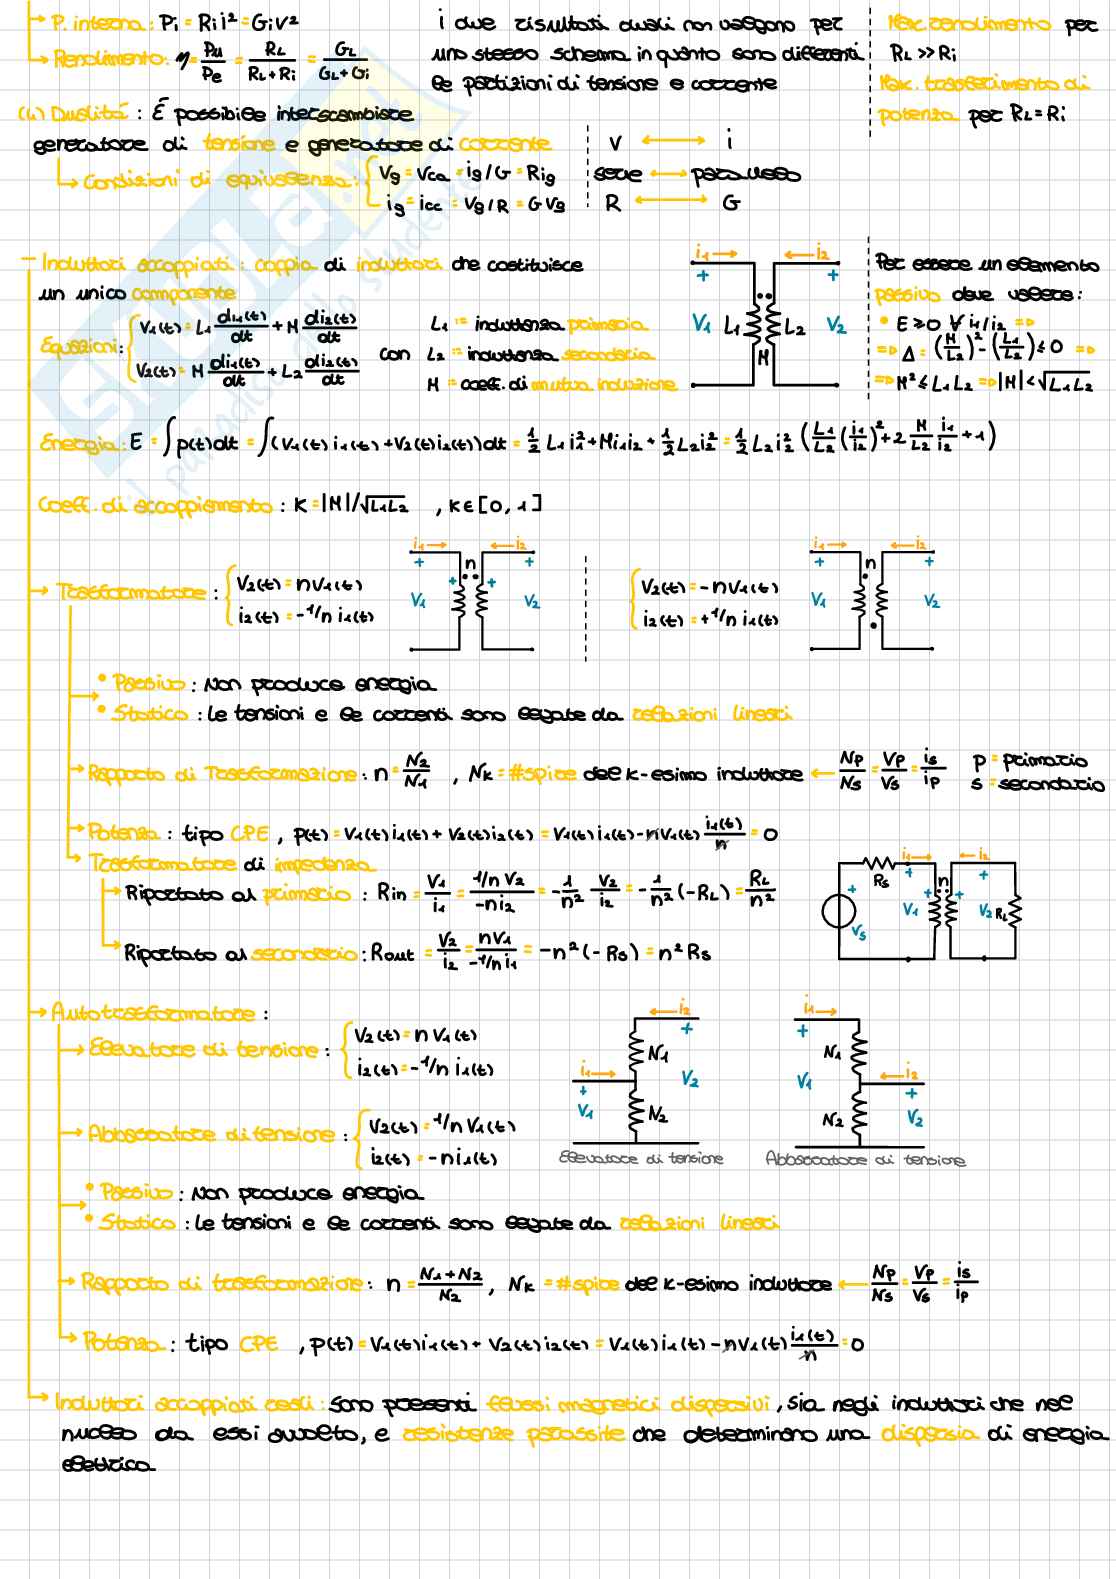 P. interna: Pi = Ri i² = Gi v²
Rendimento: η = Pu/Pe = RL/(RL+Ri) = GL/(GL+Gi)
i due risultati duali non valgono per
uno stesso schema in quanto sono differenti
le partizioni di tensione e corrente
Max. rendimento per
RL >> Ri
Max. trasferimento di
potenza per RL = Ri
(4) Dualità: È possibile interscambiare
generatore di tensione e generatore di corrente
Condizioni di equivalenza: { Vg = Vca = ig/G = Rig
ig = icc = Vg/R = G Vg
V ↔ i
serie ↔ parallelo
R ↔ G
- Induttori accoppiati: coppia di induttori che costituisce
un unico componente
Equazioni: { V1(t) = L1 di1(t)/dt + M di2(t)/dt
V2(t) = M di1(t)/dt + L2 di2(t)/dt
con
L1 := induttanza primaria
L2 := induttanza secondaria
M := coeff. di mutua induzione
i1 → ← i2
+ +
V1 L1 L2 V2
M
Per essere un elemento
passivo deve valere:
• E ≥ 0 ∀ i1/i2 ⇒
⇒ Δ = (M/L2)² - (L1/L2) ≤ 0 ⇒
⇒ M² ≤ L1 L2 ⇒ |M| < √L1L2
Energia: E = ∫p(t)dt = ∫(V1(t) i1(t) + V2(t) i2(t))dt = 1/2 L1 i1² + M i1 i2 + 1/2 L2 i2² = 1/2 L2 i2² (L1/L2 (i1/i2)² + 2 M/L2 i1/i2 + 1)
Coeff. di accoppiamento: K = |M|/√L1L2 , K ∈ [0, 1]
Trasformatore: { V2(t) = n V1(t)
i2(t) = -1/n i1(t)
i1 → ← i2
+ n +
+ +
V1 V2
{ V2(t) = -n V1(t)
i2(t) = +1/n i1(t)
i1 → ← i2
+ n +
V1 V2
• Passivo: Non produce energia
• Statico: Le tensioni e le correnti sono legate da relazioni lineari
Rapporto di Trasformazione: n = N2/N1 , Nk = #spire del k-esimo induttore ← Np/Ns = Vp/Vs = is/ip
p = primario
s = secondario
Potenza: tipo CPE, p(t) = V1(t) i1(t) + V2(t) i2(t) = V1(t) i1(t) - n V1(t) i1(t)/n = 0
Trasformatore di impedenza
Riportato al primario: Rin = V1/i1 = (1/n V2)/(-n i2) = -1/n² V2/i2 = -1/n² (-RL) = RL/n²
Riportato al secondario: Rout = V2/i2 = (n V1)/(-1/n i1) = -n² (-Rs) = n² Rs
i1 → ← i2
Rs + n +
+ + +
V1 V2 RL
Vs
Autotrasformatore:
Elevatore di tensione: { V2(t) = n V1(t)
i2(t) = -1/n i1(t)
Abbassatore di tensione: { V2(t) = 1/n V1(t)
i2(t) = -n i1(t)
← i2
+
N1
i1 → V2
+
V1 N2
Elevatore di tensione
i1 →
+
N1
V1 ← i2
+
N2 V2
Abbassatore di tensione
• Passivo: Non produce energia
• Statico: Le tensioni e le correnti sono legate da relazioni lineari
Rapporto di trasformazione: n = (N1 + N2)/N2 , Nk = #spire del k-esimo induttore ← Np/Ns = Vp/Vs = is/ip
Potenza: tipo CPE , p(t) = V1(t) i1(t) + V2(t) i2(t) = V1(t) i1(t) - n V1(t) i1(t)/n = 0
Induttori accoppiati reali: sono presenti flussi magnetici dispersivi, sia negli induttori che nel
nucleo da essi avvolto, e resistenze parassite che determinano una dispersia di energia
elettrica